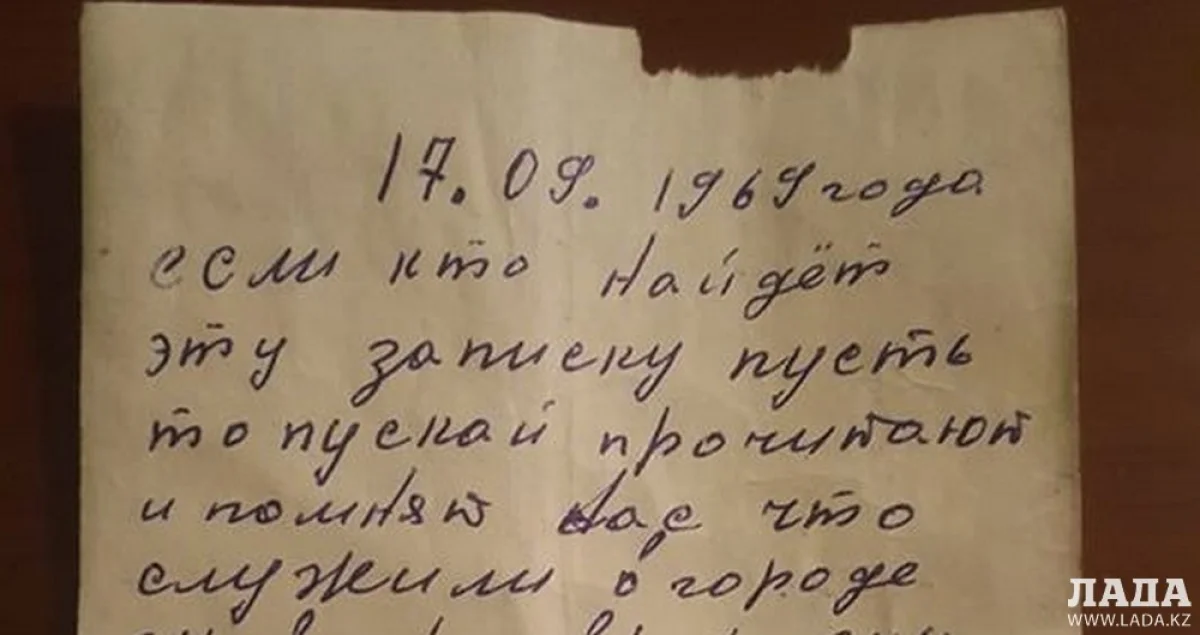 17.09.1969 года
если кто найдёт
эту записку пусть
то пускай прочитают
и помнят нас что
служили в городе
ЛАДА
WWW.LADA.KZ